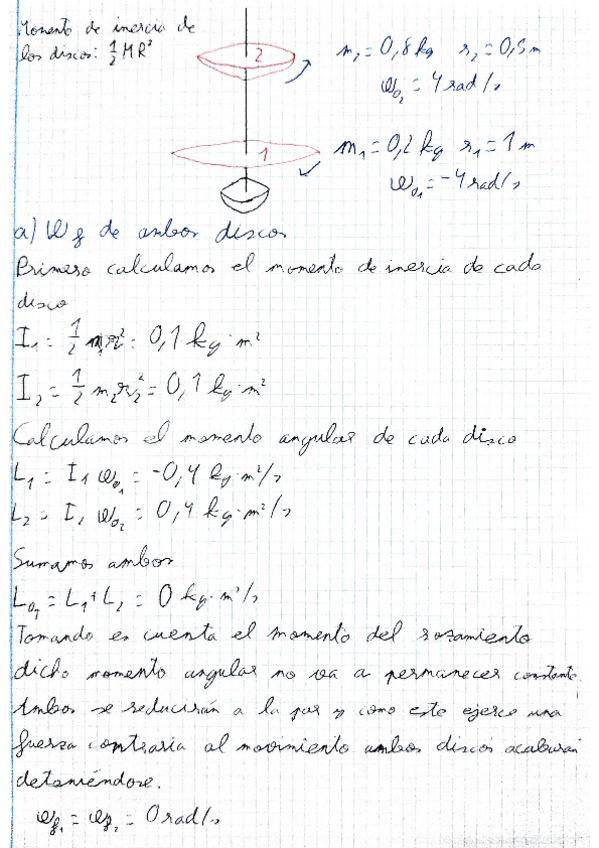 Momento de inercia de
los discos: 1/2 MR²
2
m₂ = 0,8 kg r₂ = 0,5 m
ω₀₂ = 4 rad/s
1
m₁ = 0,2 kg r₁ = 1 m
ω₀₁ = -4 rad/s
a) ωf de ambos discos
Primero calculamos el momento de inercia de cada
disco
I₁ = 1/2 m₁r₁² = 0,1 kg·m²
I₂ = 1/2 m₂r₂² = 0,1 kg·m²
Calculamos el momento angular de cada disco
L₁ = I₁ ω₀₁ = -0,4 kg·m²/s
L₂ = I₂ ω₀₂ = 0,4 kg·m²/s
Sumamos ambos
L₀T = L₁ + L₂ = 0 kg·m²/s
Tomando en cuenta el momento del rozamiento
dicho momento angular no va a permanecer constante.
Ambos se reducirán a la par y como este ejerce una
fuerza contraria al movimiento ambos discos acabarán
deteniéndose.
ωf₁ = ωf₂ = 0 rad/s